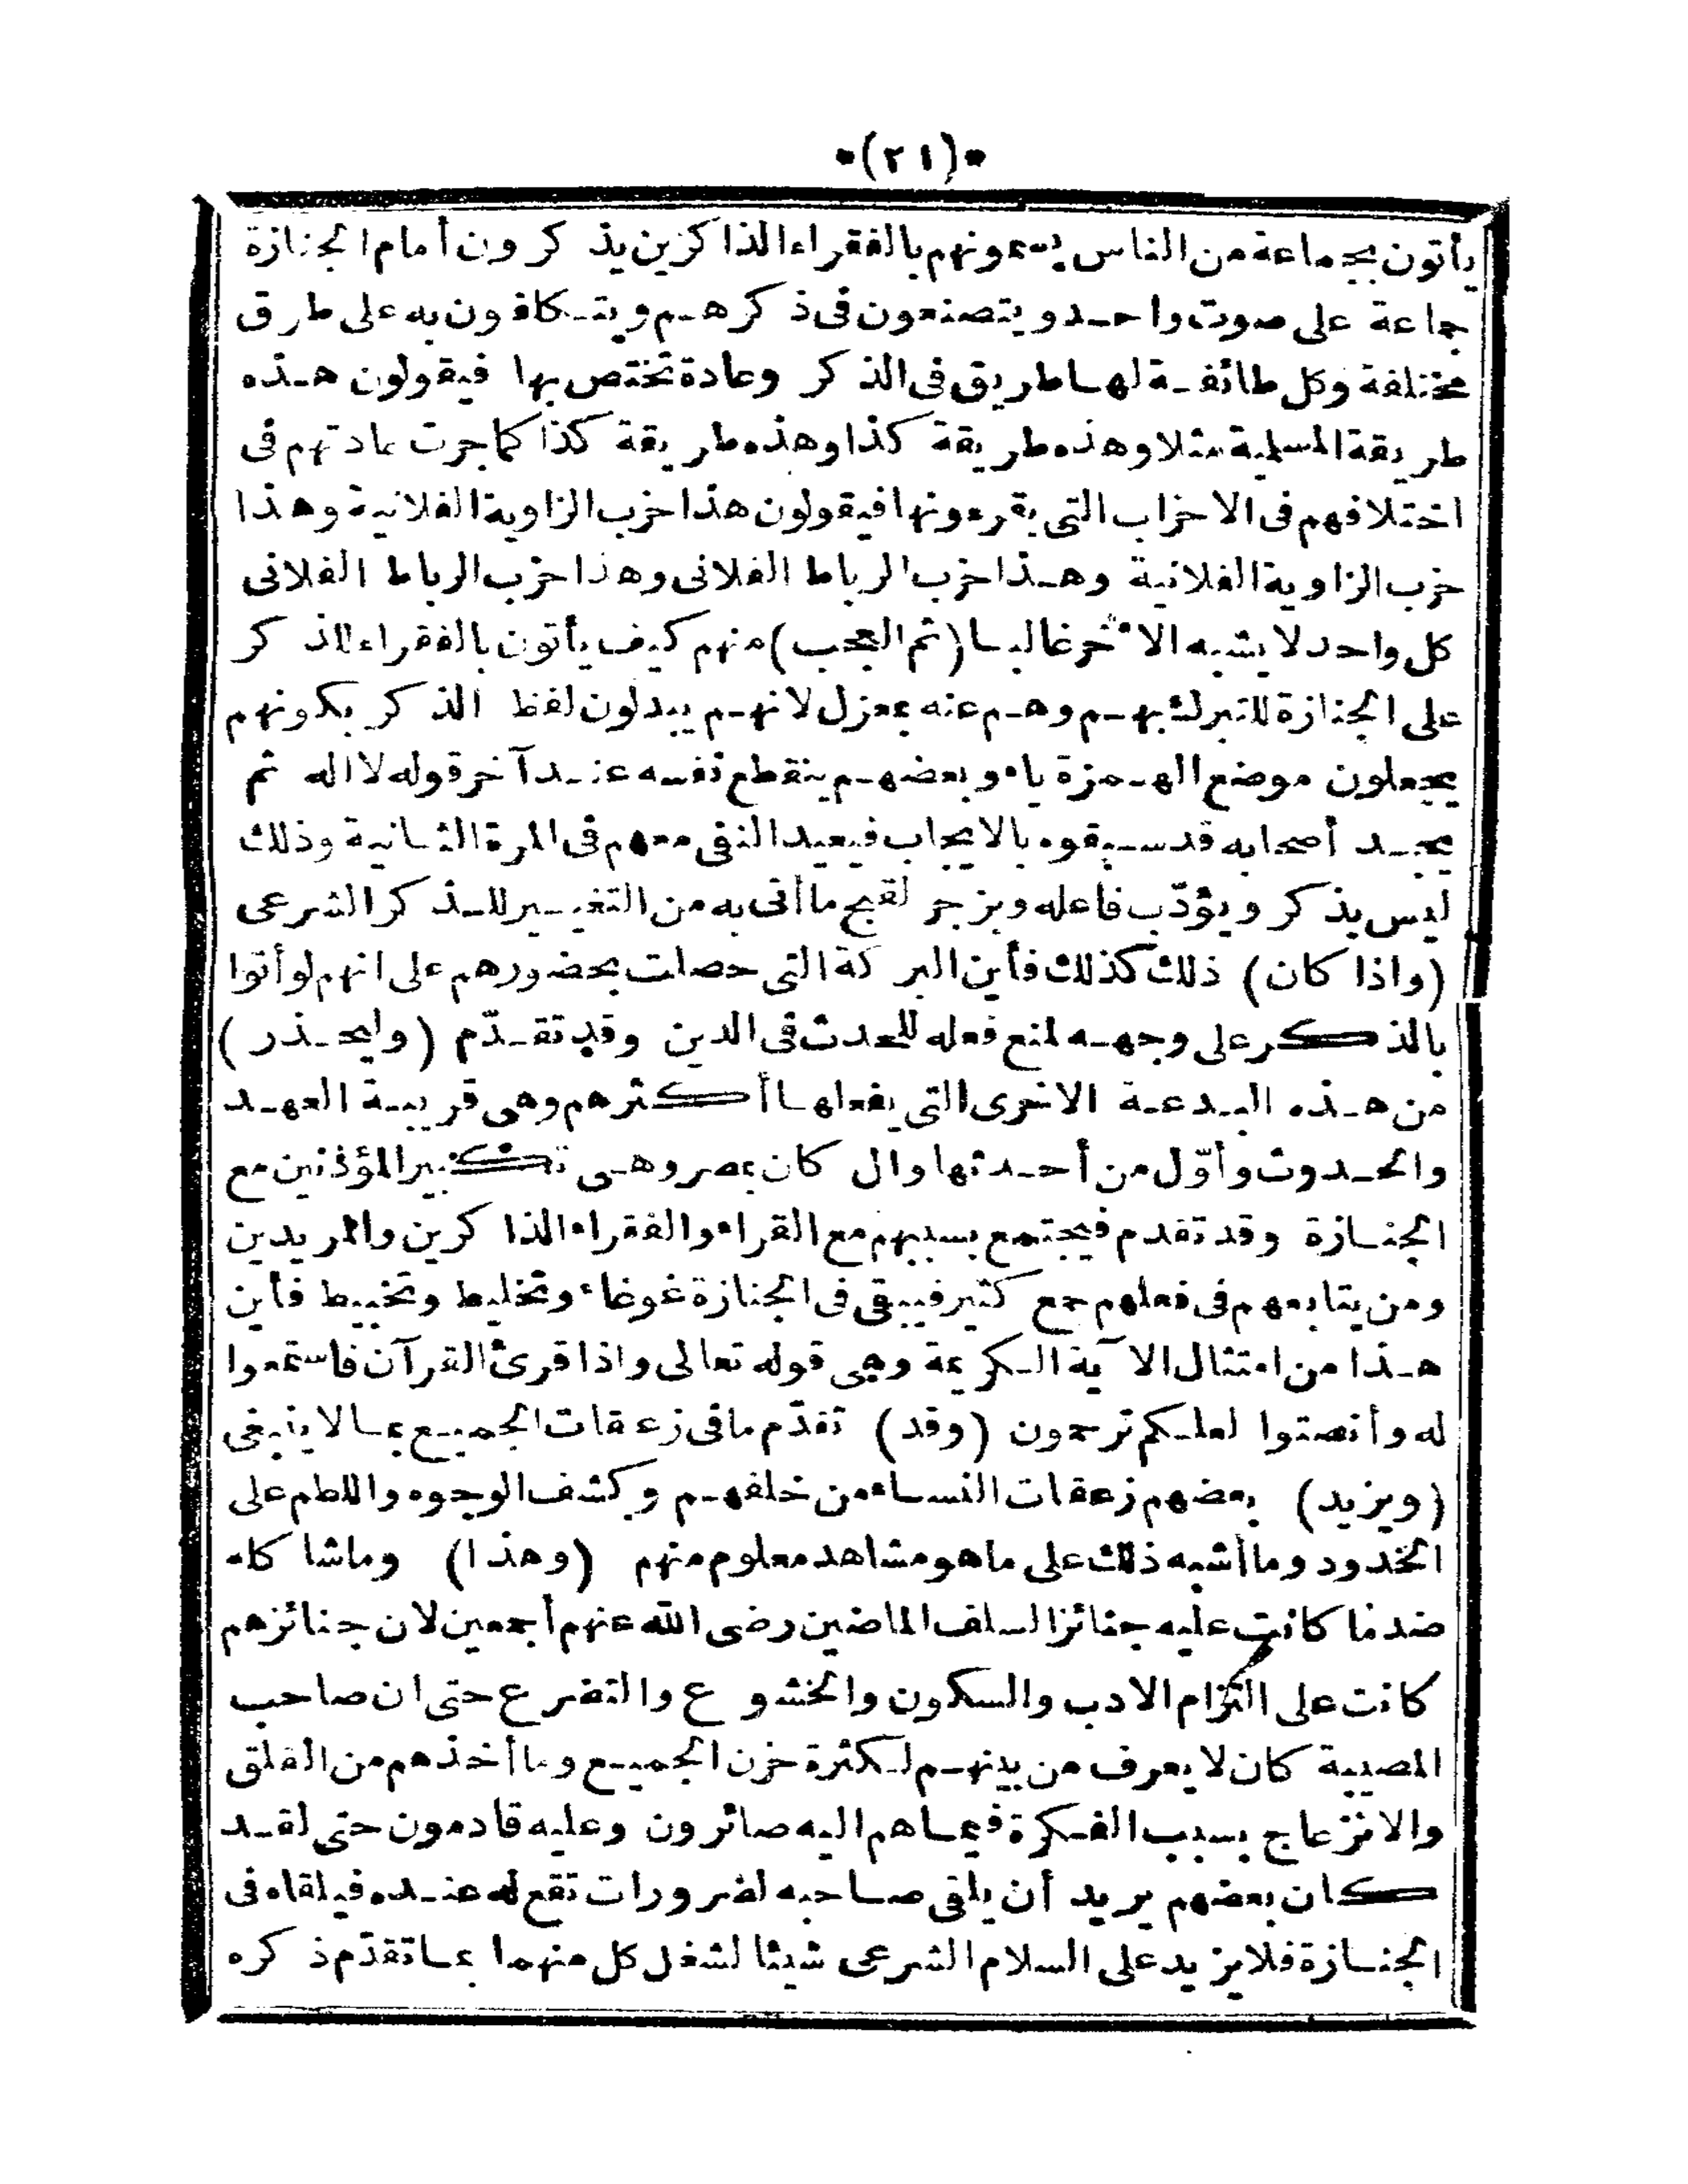 *(٢١)*
يأتون بجماعة من الناس يسمونهم بالفقراء الذاكرين يذكرون أمام الجنازة
جماعة على صوت واحد و يتصنعون فى ذكرهم و يتكلفون به على طرق
مختلفة وكل طائفة لها طريق فى الذكر وعادة تختص بها فيقولون هذه
طريقة المسلمية مثلا وهذه طريقة كذا وهذه طريقة كذا كما جرت عادتهم فى
اختلافهم فى الاحزاب التى يقرءونها فيقولون هذا حزب الزاوية الفلانية وهذا
حزب الزاوية الفلانية وهذا حزب الرباط الفلانى وهذا حزب الرباط الفلانى
كل واحد لا يشبه الآخر غالبا (ثم العجب) منهم كيف يأتون بالفقراء للذكر
على الجنازة للتبرك بهم وهم عنه بمعزل لانهم يبدلون لفظ الذكر بكونهم
يجعلون موضع الهمزة ياء و بعضهم ينقطع نفسه عند آخر قوله لا اله ثم
يجد أصحابه قد سبقوه بالايجاب فيعيد النفى معهم فى المرة الثانية وذلك
ليس بذكر و يؤدّب فاعله ويزجر لقبح ما أتى به من التغيير للذكر الشرعى
(واذا كان) ذلك كذلك فأين البركة التى حصلت بحضورهم على انهم لو أتوا
بالذكر على وجهه لمنع فعله للحدث فى الدين وقد تقدّم (وليحذر)
من هذه البدعة الاخرى التى يفعلها أكثرهم وهى قريبة العهد
والحدوث وأوّل من أحدثها وال كان بمصر وهى تكبير المؤذنين مع
الجنازة وقد تقدم فيجتمع بسببهم مع القراء والفقراء الذاكرين والمريدين
ومن يتابعهم فى فعلهم جمع كثير فيبقى فى الجنازة غوغاء وتخليط وتخبيط فأين
هذا من امتثال الآية الكريمة وهى قوله تعالى واذا قرئ القرآن فاستمعوا
له وأنصتوا لعلكم ترحمون (وقد) تقدّم ما فى زعقات الجميع بما لا ينبغى
(ويزيد) بعضهم زعقات النساء من خلفهم و كشف الوجوه واللطم على
الخدود وما أشبه ذلك على ما هو مشاهد معلوم منهم (وهذا) وما شاكله
ضد ما كانت عليه جنائز السلف الماضين رضى الله عنهم أجمعين لان جنائزهم
كانت على التزام الادب والسكون والخشوع والتضرع حتى ان صاحب
المصيبة كان لا يعرف من بينهم لكثرة حزن الجميع وما أخذهم من القلق
والانزعاج بسبب الفكرة فيما هم اليه صائرون وعليه قادمون حتى لقد
كان بعضهم يريد أن يلقى صاحبه لضرورات تقع له عنده فيلقاه فى
الجنازة فلا يزيد على السلام الشرعى شيئا لشغل كل منهما بما تقدّم ذكره